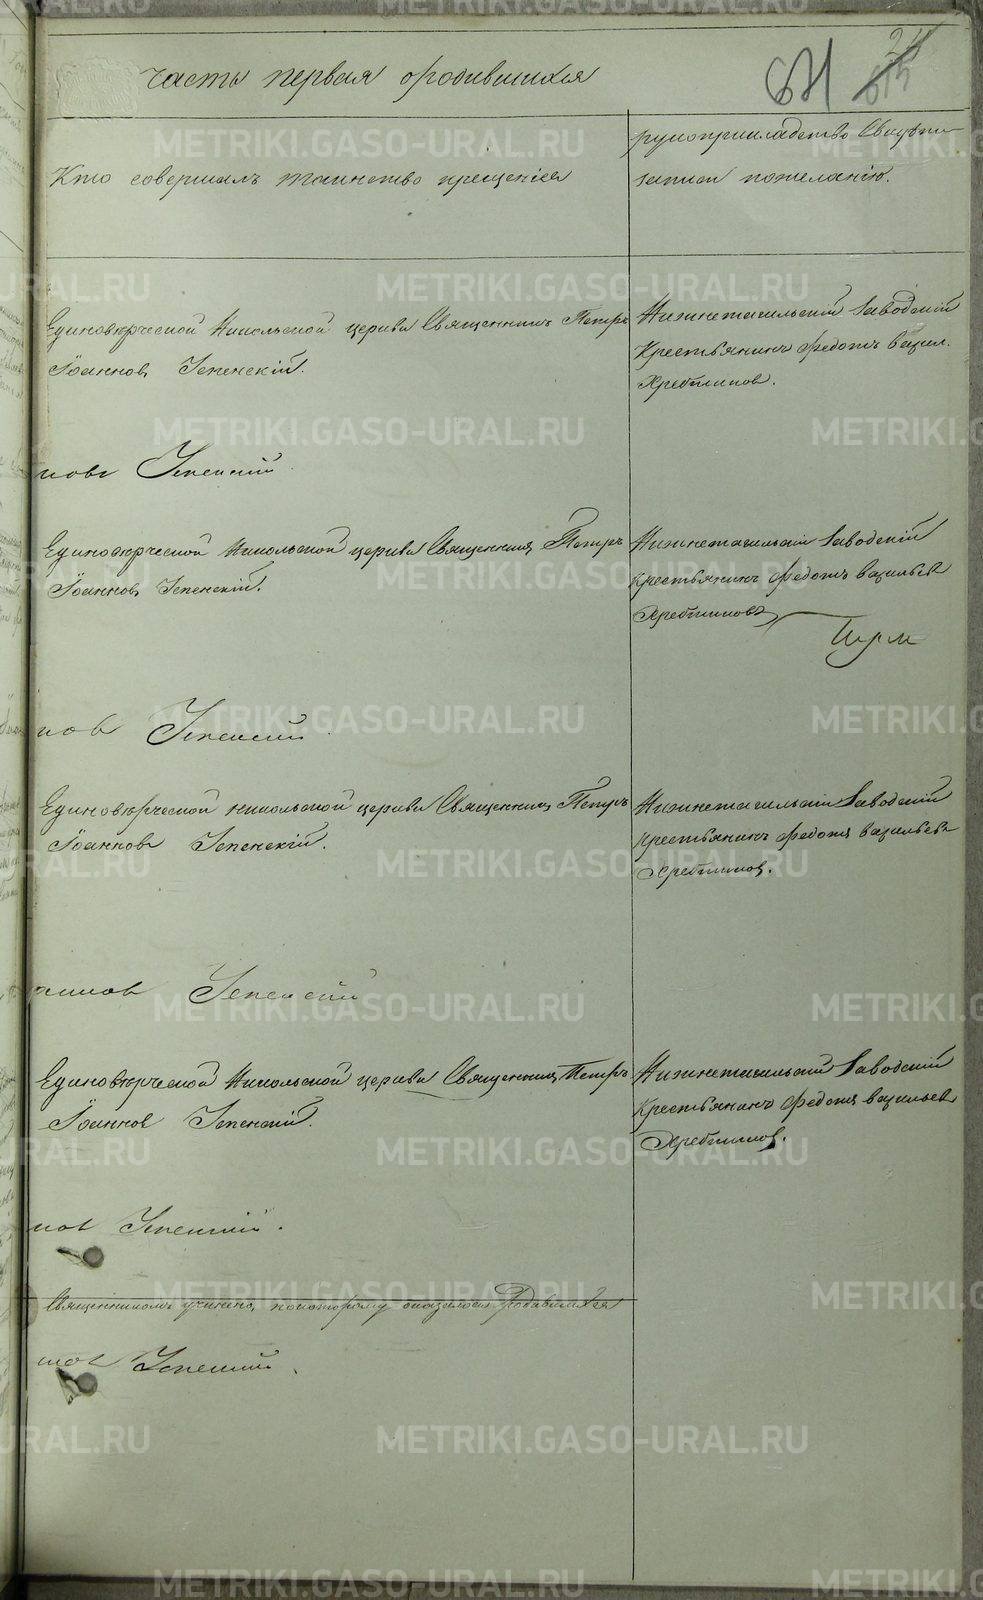 часть первая ородившихся
671
Кто совершалъ таинство крещенiя
рукоприкладство Свидѣте
записи пожеланiю.
Единовѣрческой Никольской церкви Священникъ Петръ
Iоанновъ Успенскiй.
Нижнетагильскiй Заводскiй
Крестьянинъ Федотъ Васил.
Хребтиков.
новъ Успенскiй
Единовѣрческой Никольской церкви Священникъ Петръ
Iоанновъ Успенскiй.
Нижнетагильскiй Заводскiй
крестьянинъ Федотъ Васильев
Хребтиковъ
нов Успенскiй
Единовѣрческой никольской церкви Священникъ Петръ
Iоанновъ Успенскiй.
Нижнетагильскiй Заводскiй
крестьянинъ Федотъ Васильевъ
Хребтиков.
Успенскiй
Единовѣрческой Никольской церкви Священникъ Петръ
Iоаннов Успенскiй.
Нижнетагильскiй Заводскiй
Крестьянинъ Федотъ Васильевъ
Хребтиков.
нов Успенскiй.
Священникомъ учинено, покоторому оказалось Родившихся
нов Успенскiй.
METRIKI.GASO-URAL.RU